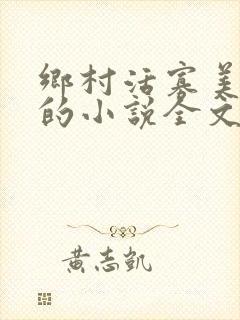 鄉村活寡美
的小說全文
黃志凱